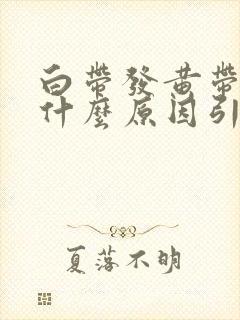 白帶發黃帶
什麼原因引
夏落不明